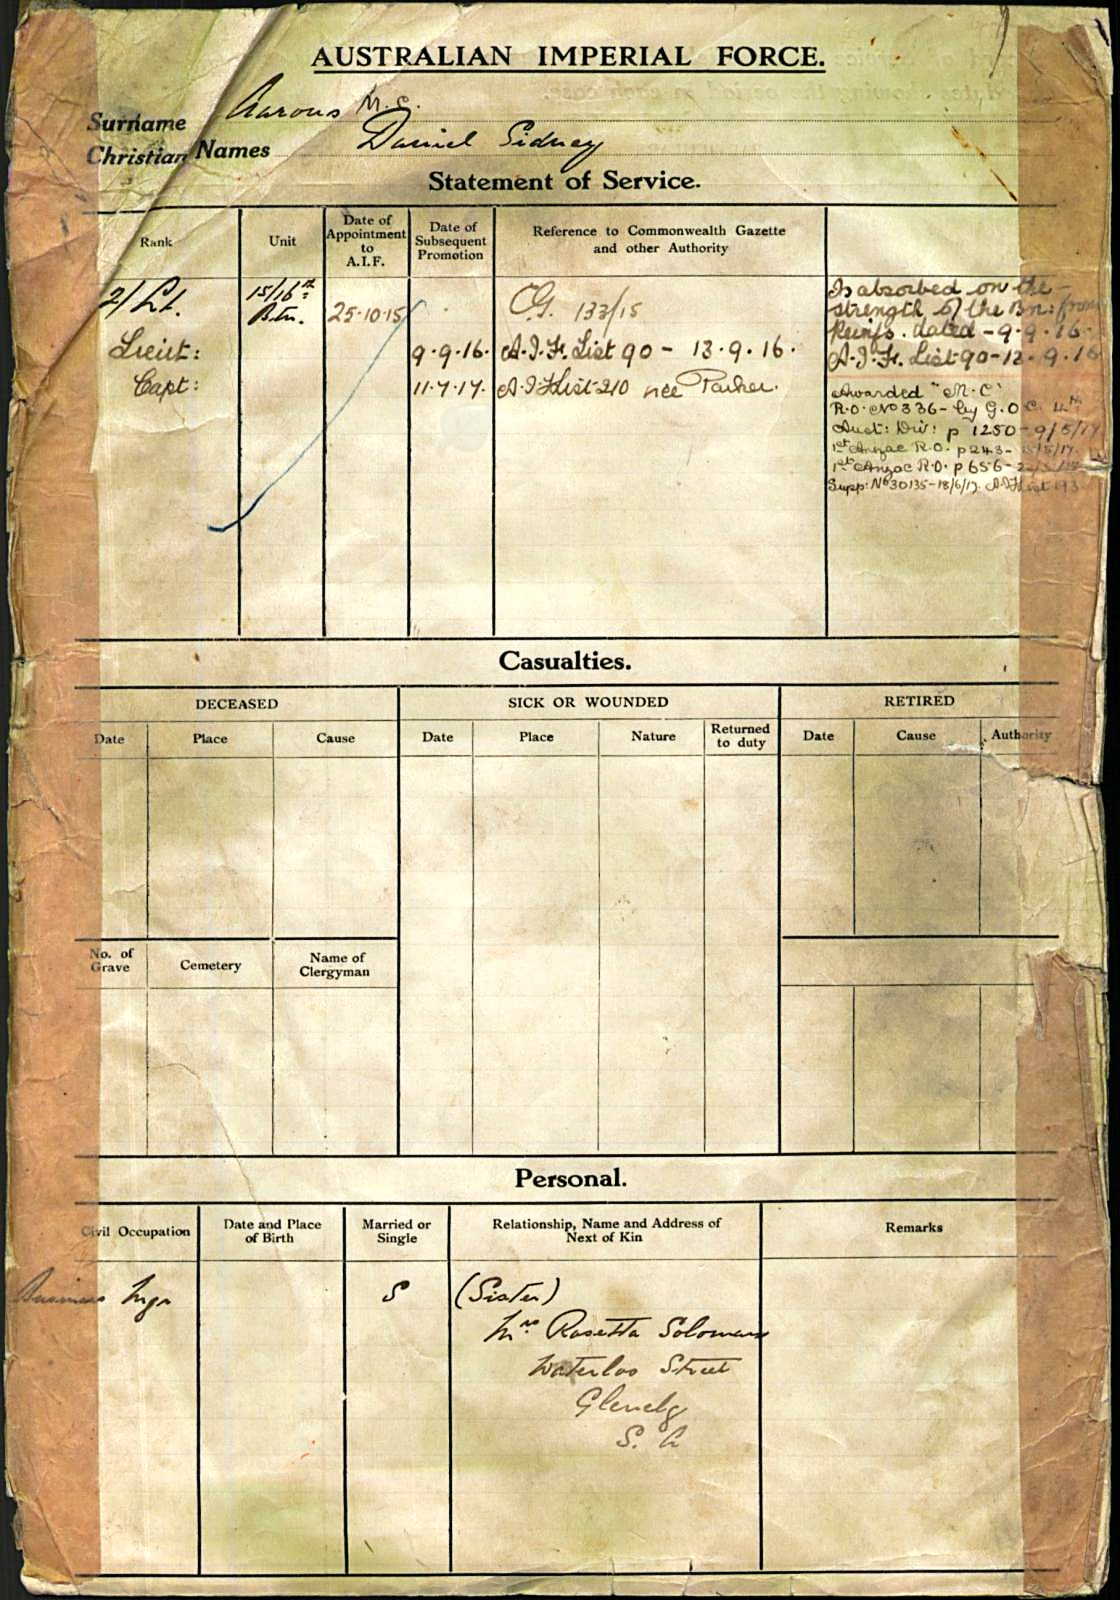 AUSTRALIAN IMPERIAL FORCE.
Surname Aarons M.C.
Christian Names Daniel Sidney
Statement of Service.
Rank
Unit
Date of Appointment to A.I.F.
Date of Subsequent Promotion
Reference to Commonwealth Gazette and other Authority
2/Lt. 15/16th Btn. 25·10·15 C.G. 133/15
Lieut: 9·9·16· A.I.F. List 90 - 13·9·16·
Capt: 11·7·17· A.I.F List 210 Parker.
Is absorbed on the
strength of the Bn: from
Reinfs. dated - 9·9·16·
A.I.F. List 90-13·9·16
Awarded "M.C"
R.O. No 336- by G.O.C. 4th
Aust: Div: p 1250 - 9/5/17
1st Anzac R.O. p243-
1st Anzac R.O. p656-
Supp: No 30135-18/6/17. A.I.F List 193
Casualties.
DECEASED
SICK OR WOUNDED
RETIRED
Date Place Cause Date Place Nature Returned to duty Date Cause Authority
No. of Grave
Cemetery
Name of Clergyman
Personal.
Civil Occupation
Date and Place of Birth
Married or Single
Relationship, Name and Address of Next of Kin
Remarks
Business Mgr S (Sister)
Mrs Rosetta Solomon
Waterloo Street
Glenelg
S. A